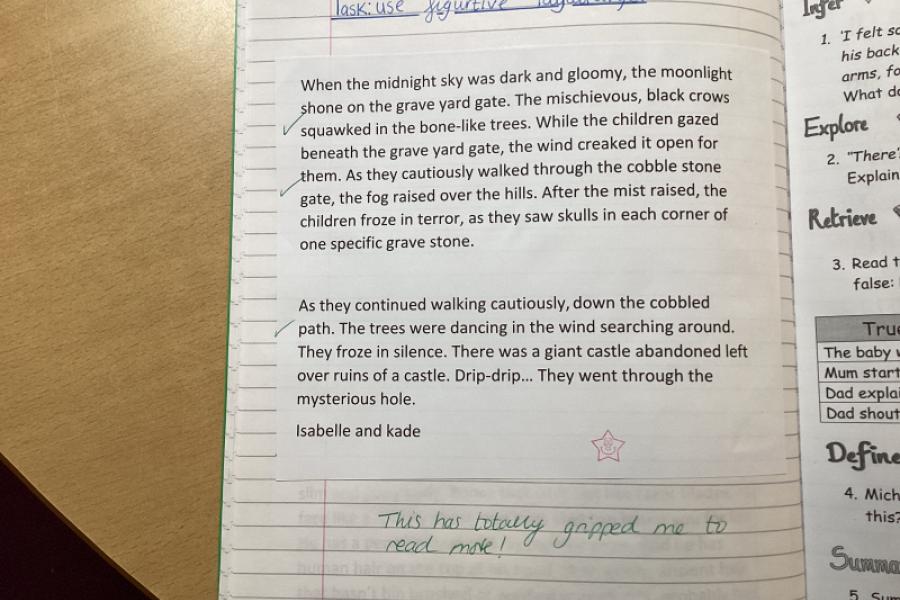 Task: use figurtive
When the midnight sky was dark and gloomy, the moonlight
shone on the grave yard gate. The mischievous, black crows
squawked in the bone-like trees. While the children gazed
beneath the grave yard gate, the wind creaked it open for
them. As they cautiously walked through the cobble stone
gate, the fog raised over the hills. After the mist raised, the
children froze in terror, as they saw skulls in each corner of
one specific grave stone.
As they continued walking cautiously, down the cobbled
path. The trees were dancing in the wind searching around.
They froze in silence. There was a giant castle abandoned left
over ruins of a castle. Drip-drip... They went through the
mysterious hole.
Isabelle and kade
This has totally gripped me to
read more!
Infer
1. 'I felt
his back
arms,
What
Explore
2. "There'
Explain
Retrieve
3. Read
false:
True
The baby
Mum start
Dad explai
Dad shout
Define
4. Mich
this?
Summa
5. Sum